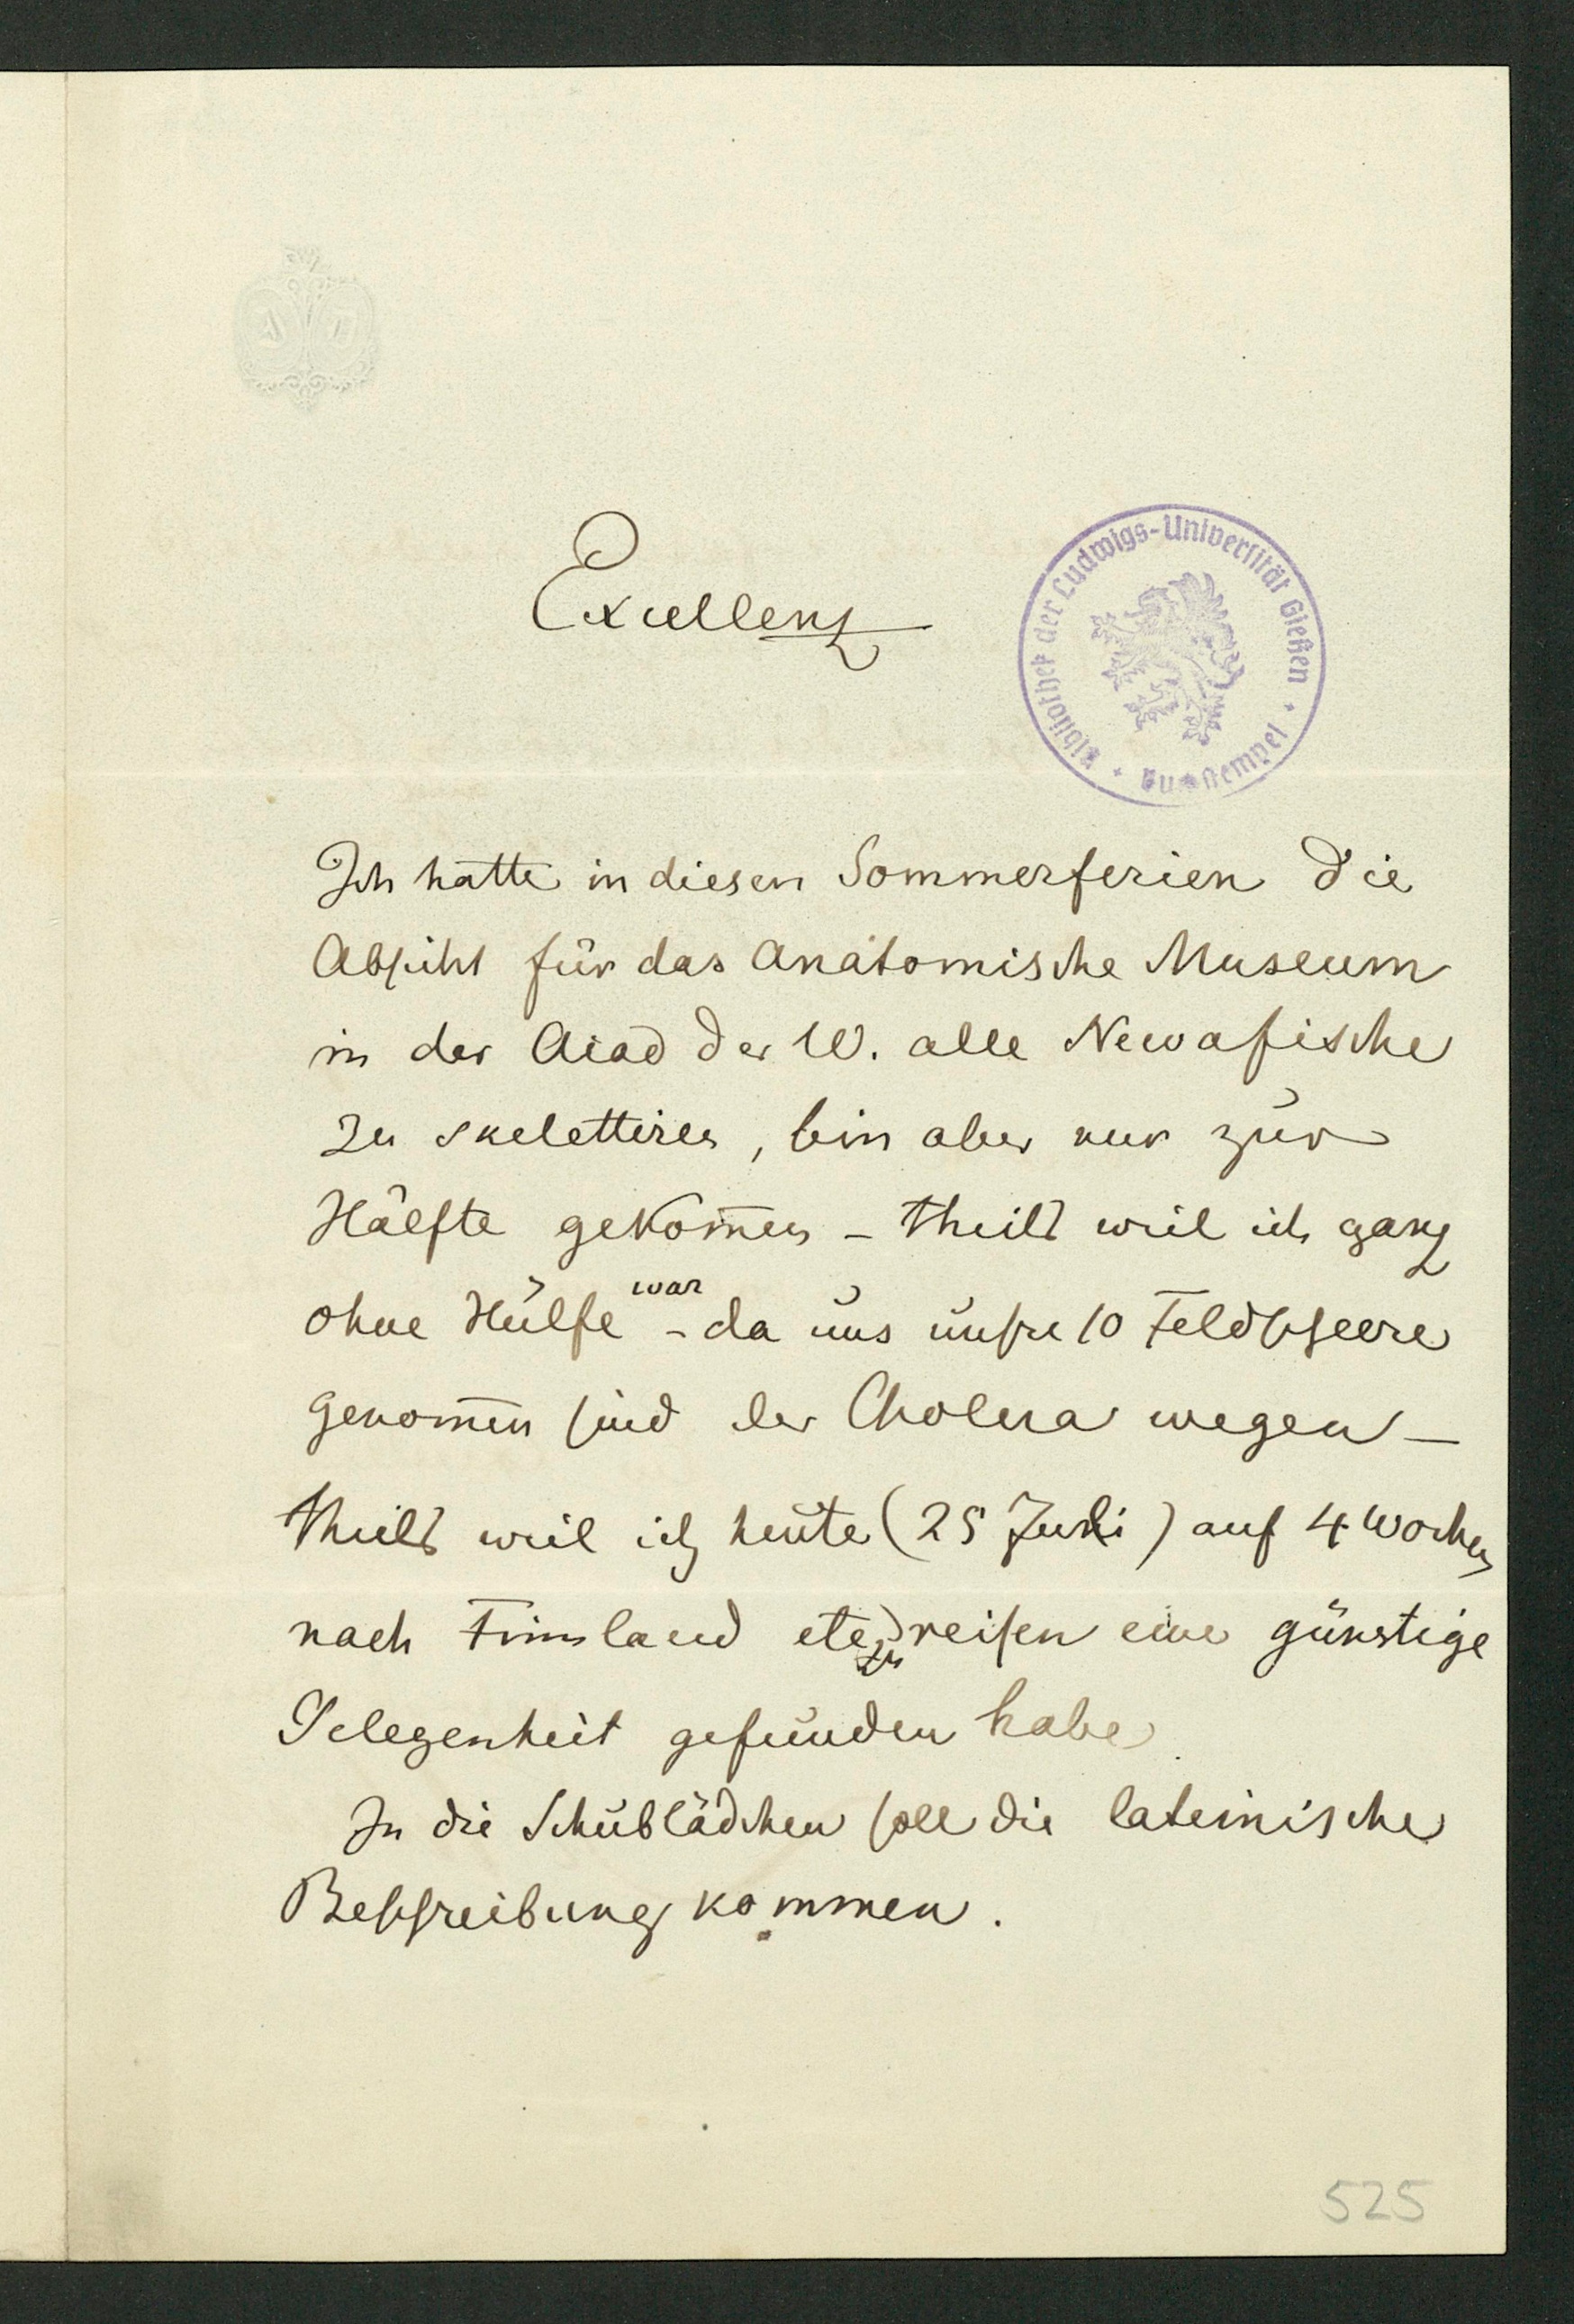 Excellenz
Bibliothek der Ludwigs-Universität Gießen
Ich hatte in diesen Sommerferien die
Absicht für das Anatomische Museum
in der Acad der W. alle Newafische
zu skelettiren, bin aber nur zur
Hälfte gekom̄en – theils weil ich ganz
ohne Hülfe war – da uns unsre 10 Feldscheere
genom̄en sind der Cholera wegen –
theils weil ich heute (25 Juli) auf 4 Wochen
nach Finnland etc zu reisen eine günstige
Gelegenheit gefunden habe
In die Schublädchen soll die lateinische
Beschreibung kommen.
525